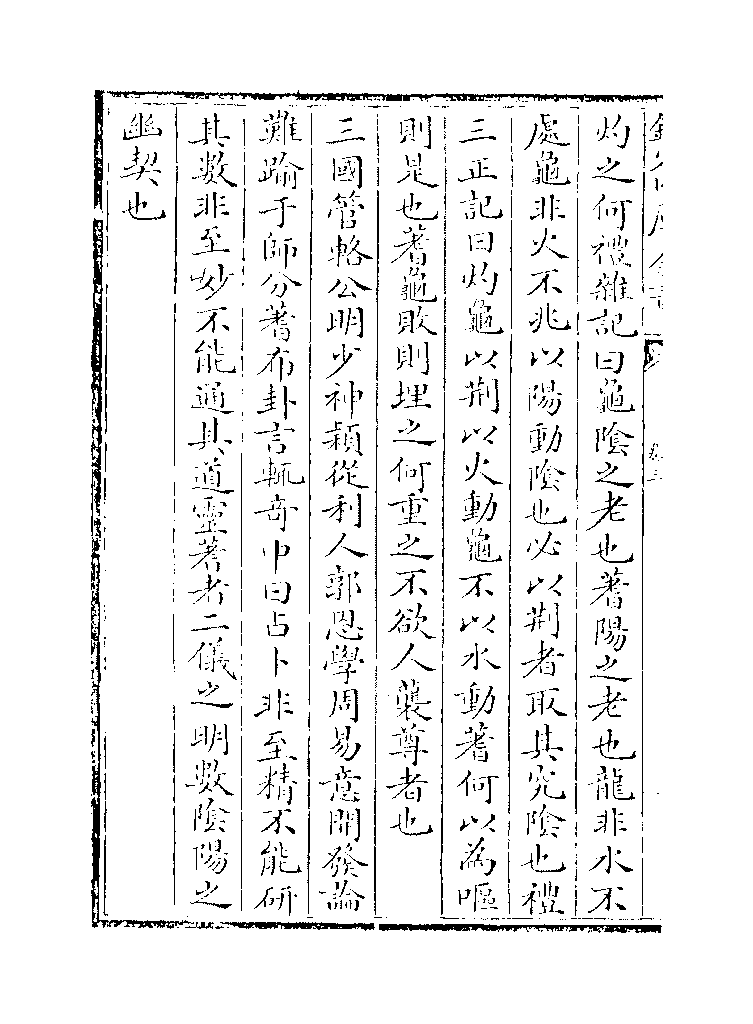 灼之何禮雜記曰龜陰之老也蓍陽之老也龍非水不
處龜非火不兆以陽動陰也必以荆者取其究陰也禮
三正記曰灼龜以荆以火動龜不以水動蓍何以為嘔
則是也蓍龜敗則埋之何重之不欲人褻尊者也
三國管輅公明少神穎從利人郭恩學周易意開發論
難踰于師分蓍布卦言輒奇中曰占卜非至精不能研
其數非至妙不能通其道靈蓍者二儀之明數陰陽之
幽契也